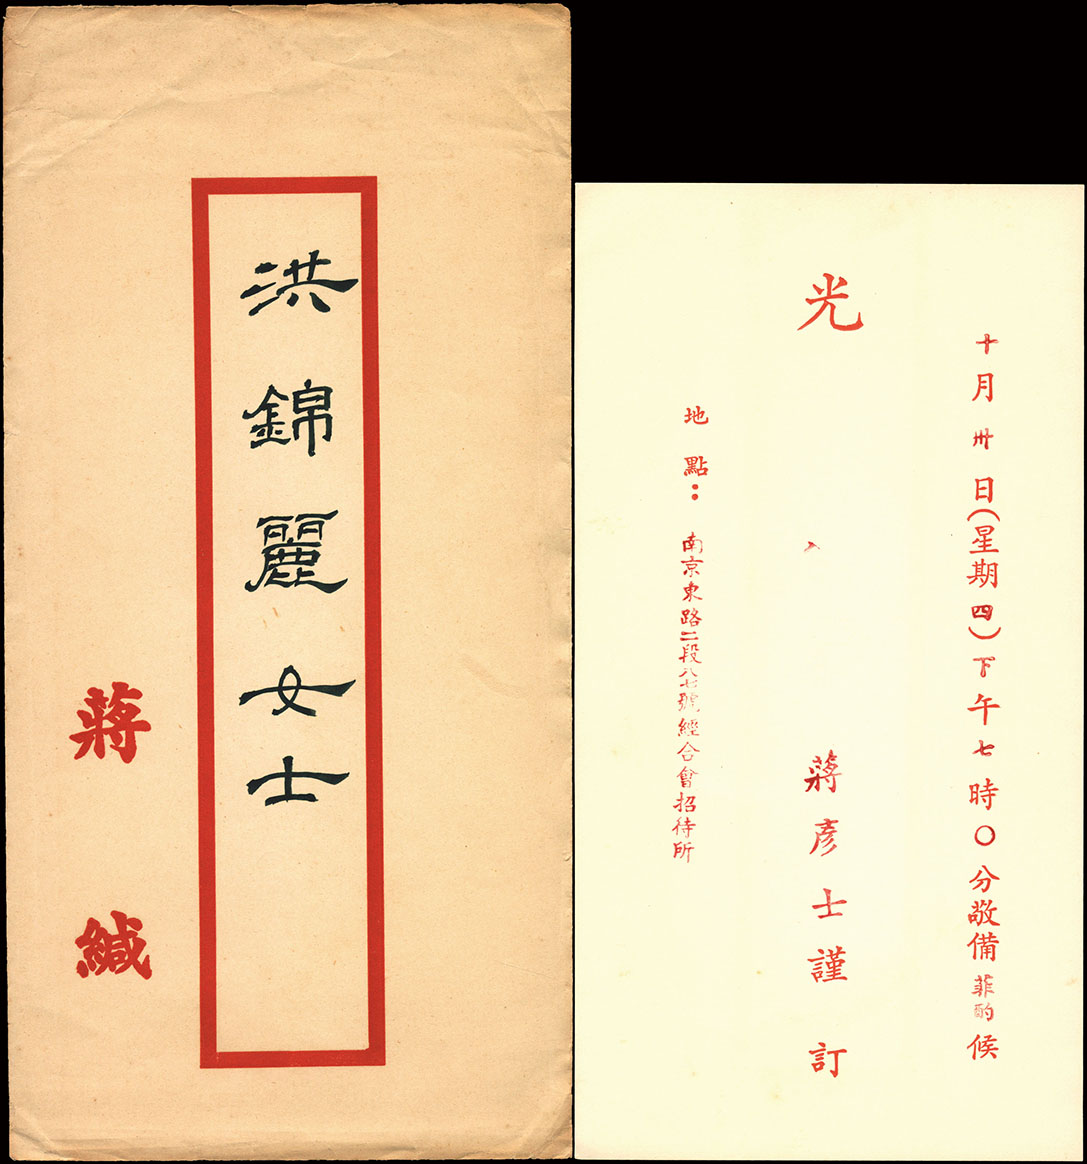 洪錦麗女士
蔣緘
十月卅日(星期四)下午七時〇分敬備菲酌候
光
蔣彥士謹訂
地點：南京東路二段八七號經合會招待所